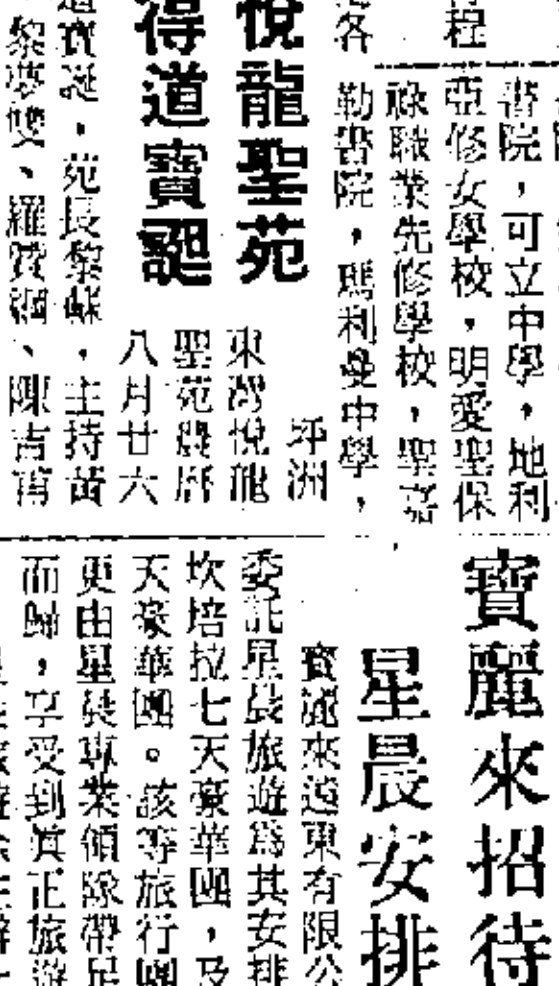 書院，可立中學，地利
亞修女學校，明愛聖保
祿職業先修學校，聖嘉
勒書院，瑪利曼中學，
程
各
悅龍聖苑
得道寶誕
坪洲
東灣悅龍
聖苑農曆
八月廿六
道寶誕，苑長黎蘇，主持黃
黎夢雙、羅贊綱、陳吉甫
寶麗來招待
星晨安排
寶麗來遠東有限公
委託星晨旅遊爲其安排
坎培拉七天豪華團，及
天豪華團。該等旅行團
更由星晨專業領隊帶
而歸，享受到眞正旅遊